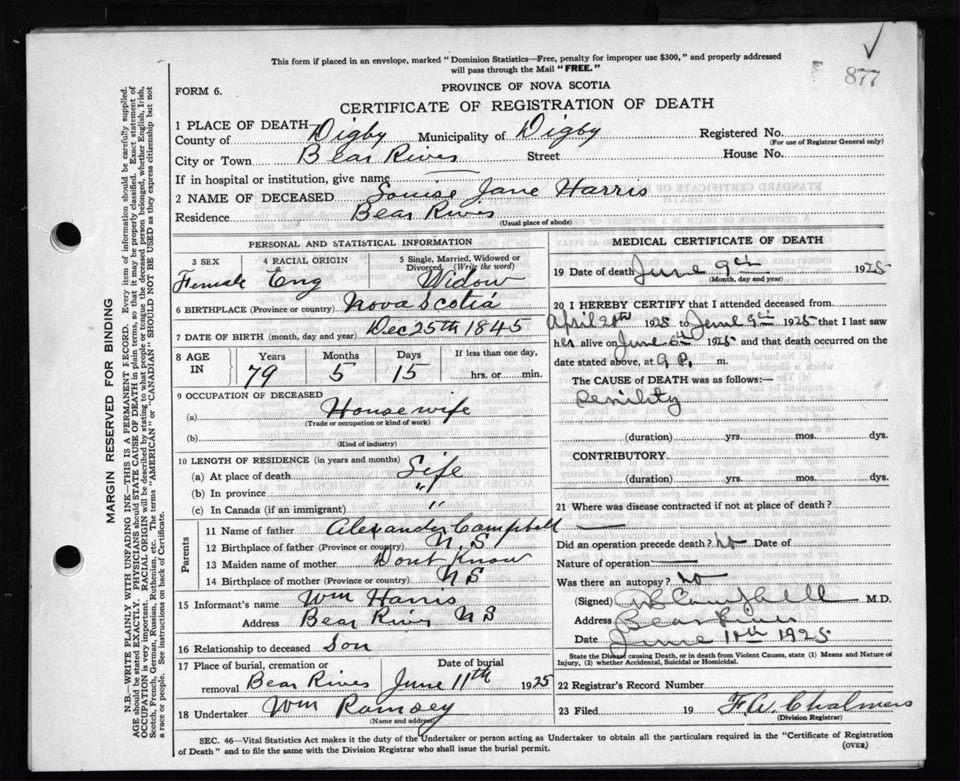 877
This form if placed in an envelope, marked "Dominion Statistics—Free, penalty for improper use $300," and properly addressed
will pass through the Mail "FREE."
FORM 6.
PROVINCE OF NOVA SCOTIA
CERTIFICATE OF REGISTRATION OF DEATH
1 PLACE OF DEATH
County of Digby Municipality of Digby Registered No.
(For use of Registrar General only)
City or Town Bear River Street House No.
If in hospital or institution, give name
2 NAME OF DECEASED Louise Jane Harris
Residence Bear River
(Usual place of abode)
PERSONAL AND STATISTICAL INFORMATION
3 SEX 4 RACIAL ORIGIN 5 Single, Married, Widowed or
Divorced (Write the word)
Female Eng Widow
6 BIRTHPLACE (Province or country) Nova Scotia
7 DATE OF BIRTH (month, day and year) Dec 25th 1845
8 AGE IN Years Months Days If less than one day,
79 5 15 hrs. or min.
9 OCCUPATION OF DECEASED
(a) Housewife
(Trade or occupation or kind of work)
(b)
(Kind of industry)
10 LENGTH OF RESIDENCE (in years and months)
(a) At place of death Life
(b) In province "
(c) In Canada (if an immigrant) "
Parents
11 Name of father Alexander Campbell
12 Birthplace of father (Province or country) N.S
13 Maiden name of mother Dont Know
14 Birthplace of mother (Province or country) NS
15 Informant's name Wm Harris
Address Bear River NS
16 Relationship to deceased Son
17 Place of burial, cremation or Date of burial
removal Bear River June 11th 1925
18 Undertaker Wm Ramsey
(Name and address)
MEDICAL CERTIFICATE OF DEATH
19 Date of death June 9th 1925
(Month, day and year)
20 I HEREBY CERTIFY that I attended deceased from
April 1925 to June 9th 1925 that I last saw
her alive on June 6th 1925 and that death occurred on the
date stated above, at 9 P. m.
The CAUSE OF DEATH was as follows:—
Senility
(duration) yrs. mos. dys.
CONTRIBUTORY
(duration) yrs. mos. dys.
21 Where was disease contracted if not at place of death?
Did an operation precede death? No Date of
Nature of operation
Was there an autopsy? No
(Signed) Campbell M.D.
Address Bear River
Date June 11th 1925
State the Disease causing Death, or in death from Violent Causes, state (1) Means and Nature of
Injury, (2) whether Accidental, Suicidal or Homicidal.
22 Registrar's Record Number
23 Filed 19 F.W. Chalmers
(Division Registrar)
SEC. 46—Vital Statistics Act makes it the duty of the Undertaker or person acting as Undertaker to obtain all the particulars required in the "Certificate of Registration
of Death" and to file the same with the Division Registrar who shall issue the burial permit.
(OVER)
MARGIN RESERVED FOR BINDING
N.B.—WRITE PLAINLY WITH UNFADING INK—THIS IS A PERMANENT RECORD. Every item of information should be carefully supplied.
AGE should be stated EXACTLY. PHYSICIANS should STATE CAUSE OF DEATH in plain terms, so that it may be properly classified. Exact statement of
OCCUPATION is very important. RACIAL ORIGIN will be described by stating to what people or tongue the deceased person belonged, whether English, Irish,
Scotch, French, German, Russian, Ruthenian, etc. The terms "AMERICAN" or "CANADIAN" SHOULD NOT BE USED as they express citizenship but not
a race or people. See instructions on back of Certificate.